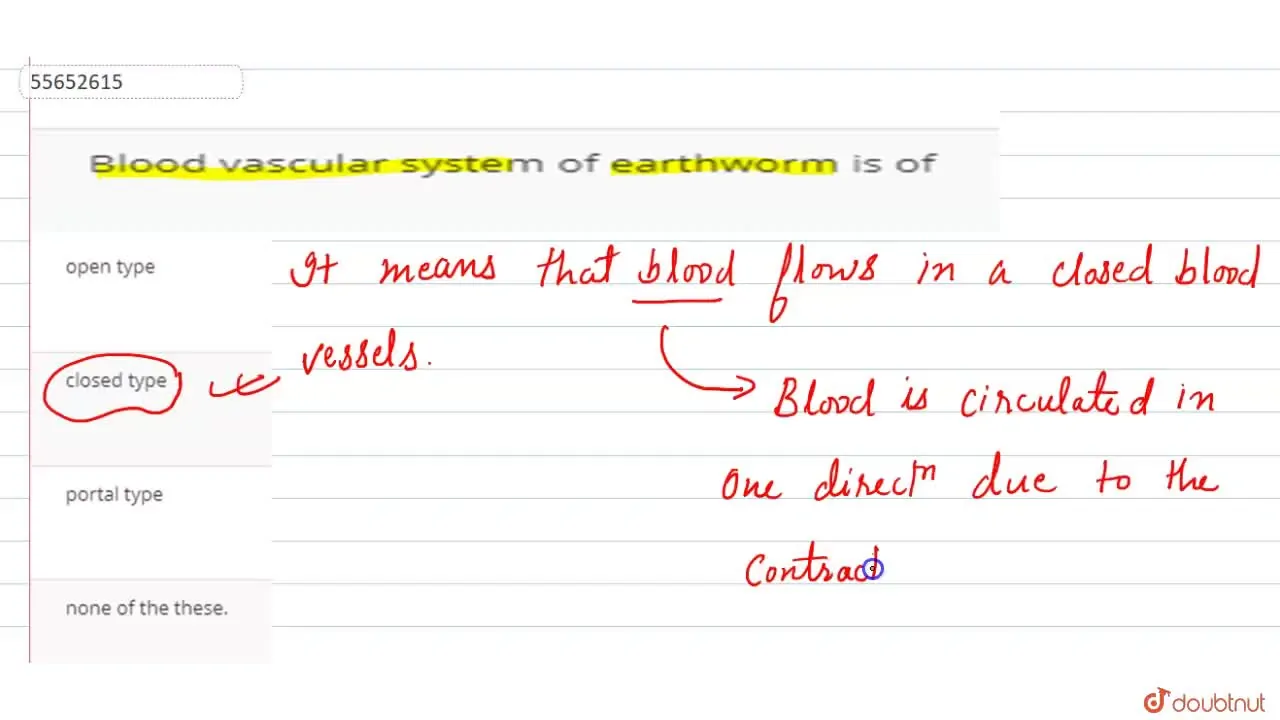 55652615
Blood vascular system of earthworm is of
open type
It means that blood flows in a closed blood
vessels.
closed type
Blood is circulated in
portal type
one directn due to the
contract
none of the these.
doubtnut